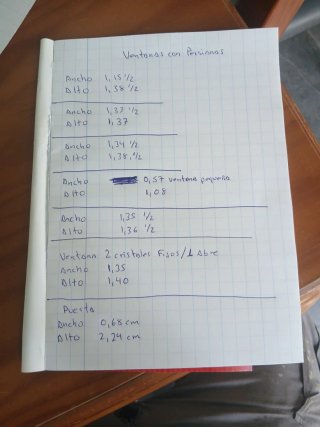 Ventanas con Persianas
Ancho 1,15 1/2
Alto 1,38 1/2
Ancho 1,37 1/2
Alto 1,37
Ancho 1,34 1/2
Alto 1,38,1/2
Ancho 0,57 ventana pequeña
Alto 1,08
Ancho 1,35 1/2
Alto 1,36 1/2
Ventana 2 cristales Fijos/1 Abre
Ancho 1,35
Alto 1,40
Puerta
Ancho 0,68 cm
Alto 2,24 cm